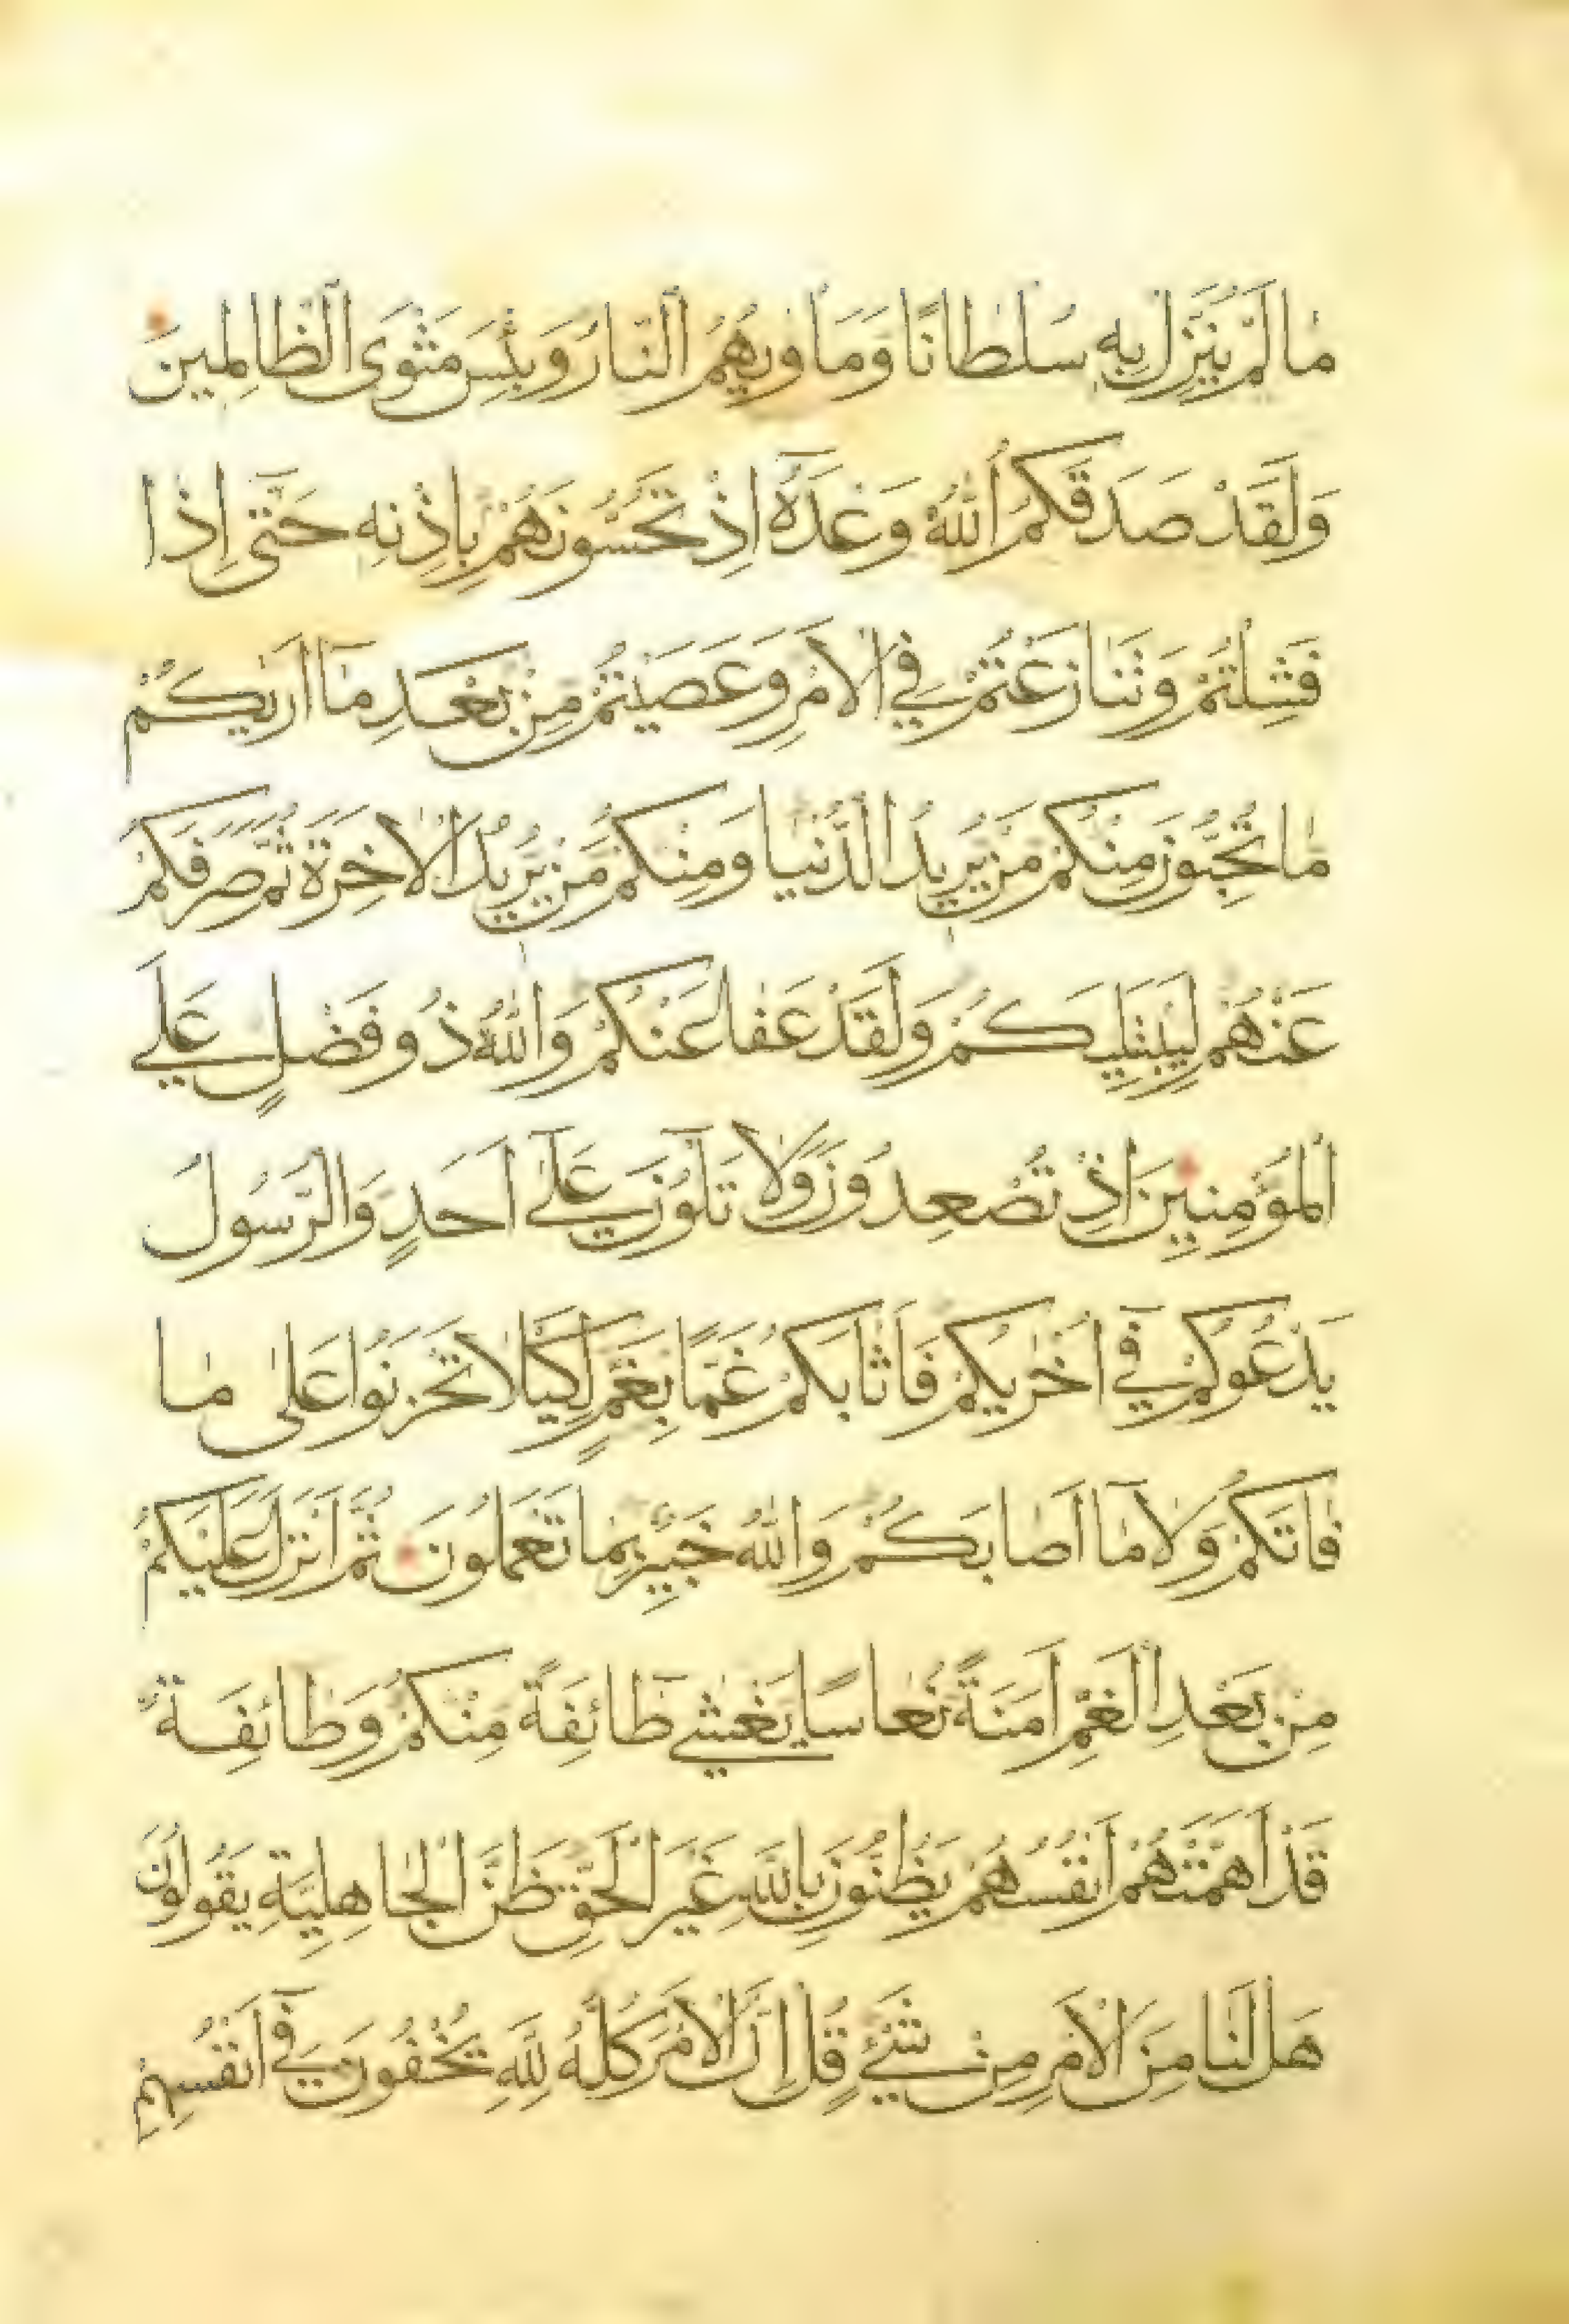 مَا لَمْ يُنَزِّلْ بِهِ سُلْطَانًا وَمَأْوٰيهُمُ النَّارُ وَبِئْسَ مَثْوَى الظَّالِمِينَ
وَلَقَدْ صَدَقَكُمُ اللّٰهُ وَعْدَهُٓ اِذْ تَحُسُّونَهُمْ بِاِذْنِهِ حَتّٰٓى اِذَا
فَشِلْتُمْ وَتَنَازَعْتُمْ فِي الْاَمْرِ وَعَصَيْتُمْ مِنْ بَعْدِ مَٓا اَرٰيكُمْ
مَا تُحِبُّونَ مِنْكُمْ مَنْ يُرِيدُ الدُّنْيَا وَمِنْكُمْ مَنْ يُرِيدُ الْاٰخِرَةَ ثُمَّ صَرَفَكُمْ
عَنْهُمْ لِيَبْتَلِيَكُمْ وَلَقَدْ عَفَا عَنْكُمْ وَاللّٰهُ ذُو فَضْلٍ عَلَى
الْمُؤْمِنِينَ اِذْ تُصْعِدُونَ وَلَا تَلْوُنَ عَلٰٓى اَحَدٍ وَالرَّسُولُ
يَدْعُوكُمْ فِٓي اُخْرٰيكُمْ فَاَثَابَكُمْ غَمًّا بِغَمٍّ لِكَيْلَا تَحْزَنُوا عَلٰى مَا
فَاتَكُمْ وَلَا مَٓا اَصَابَكُمْ وَاللّٰهُ خَبِيرٌ بِمَا تَعْمَلُونَ ثُمَّ اَنْزَلَ عَلَيْكُمْ
مِنْ بَعْدِ الْغَمِّ اَمَنَةً نُعَاسًا يَغْشٰى طَٓائِفَةً مِنْكُمْ وَطَائِفَةٌ
قَدْ اَهَمَّتْهُمْ اَنْفُسُهُمْ يَظُنُّونَ بِاللّٰهِ غَيْرَ الْحَقِّ ظَنَّ الْجَاهِلِيَّةِ يَقُولُونَ
هَلْ لَنَا مِنَ الْاَمْرِ مِنْ شَيْءٍ قُلْ اِنَّ الْاَمْرَ كُلَّهُ لِلّٰهِ يُخْفُونَ فِٓي اَنْفُسِهِمْ